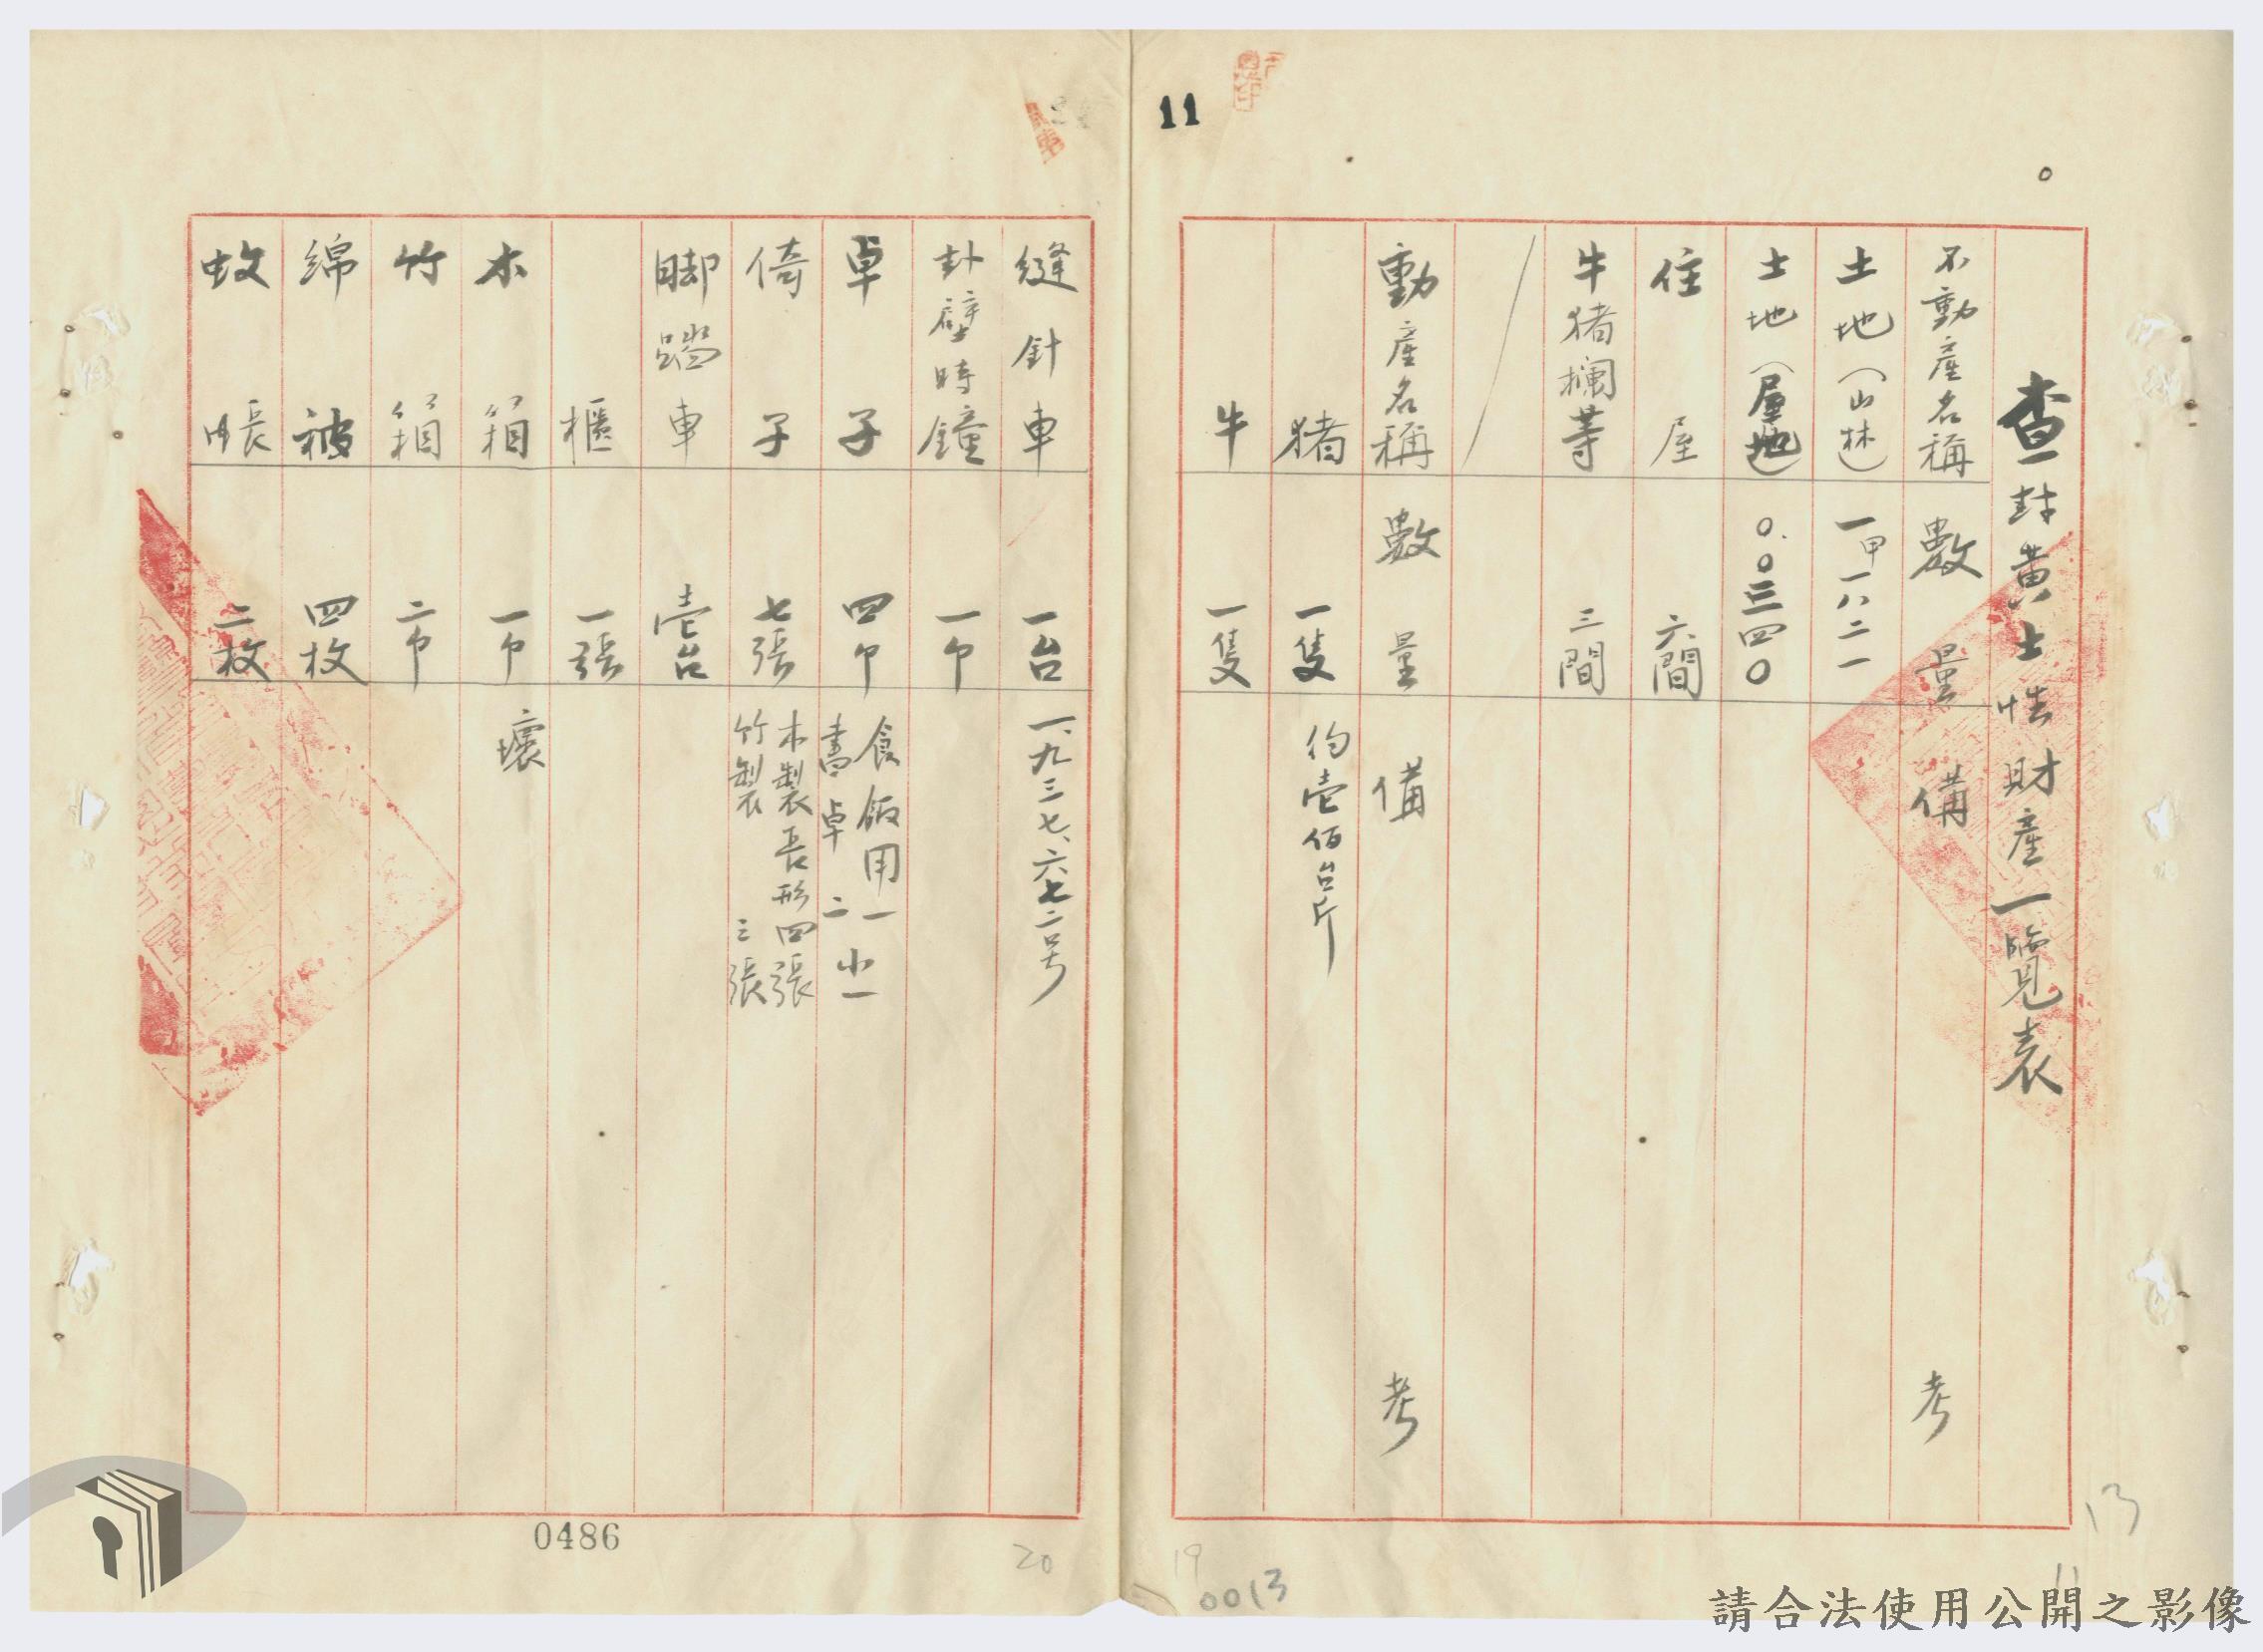 11
查封黃士性財產一覽表
不動產名稱 數量 備考
土地(山林) 一甲一八二一
土地(屋地) 0.0三四0
住屋 六間
牛猪欄等 三間
動產名稱 數量 備考
猪 一隻 約壹佰台斤
牛 一隻
縫針車 一台 一、九三七、六七二号
卦壁時鐘 一个
卓子 四个 食飯用一 小一
書卓 二
倚子 七張 木製長形四張
竹製 三張
脚踏車 壱台
櫃 一張
木箱 一个 壞
竹箱 二个
綿被 四枚
蚊帳 二枚
0486
20
19
0013
13
11
請合法使用公開之影像